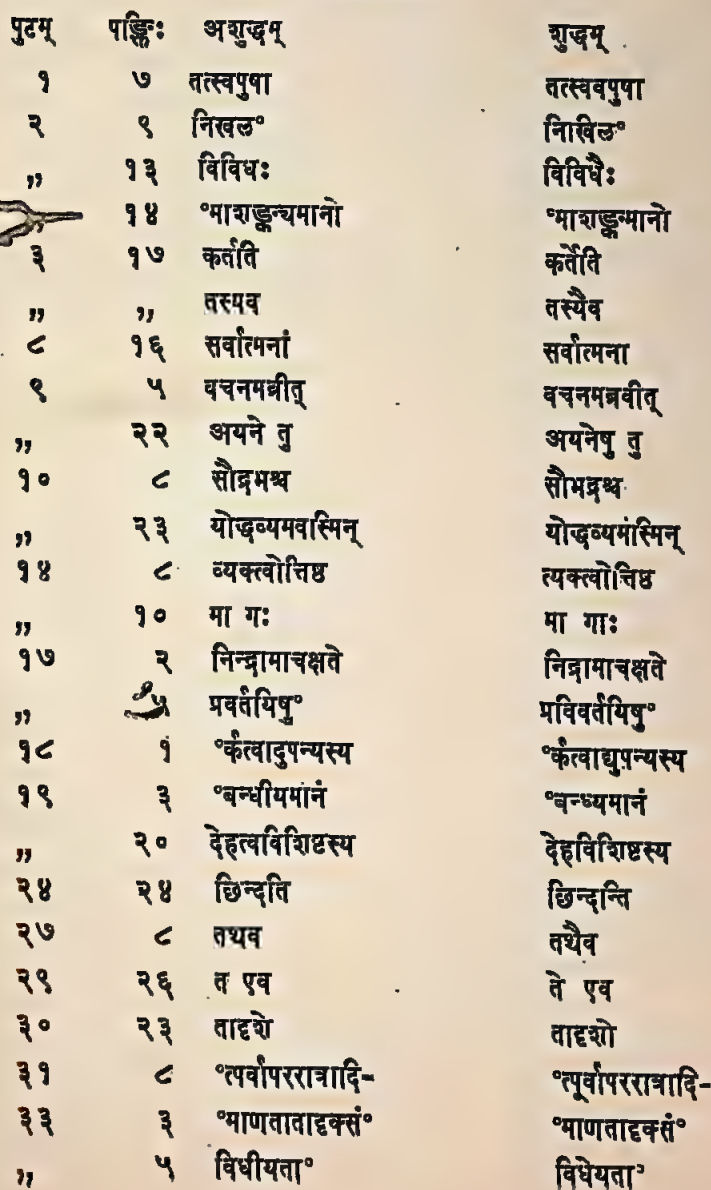 पुटम् पङ्क्तिः अशुद्धम् शुद्धम्
१ ७ तत्स्वपुषा तत्स्ववपुषा
२ ९ निखल° निखिल°
,, १३ विविधः विविधैः
१४ °माशङ्कन्यमानो °माशङ्क्यमानो
३ १७ कर्तति कर्तेति
,, ,, तस्यव तस्यैव
८ १६ सर्वात्मनां सर्वात्मना
९ ५ वचनमव्रीत् वचनमब्रवीत्
,, २२ अयने तु अयनेषु तु
१० ८ सौद्रभश्च सौभद्रश्च
,, २३ योद्धव्यमवास्मिन् योद्धव्यमस्मिन्
१४ ८ व्यक्त्वोत्तिष्ठ त्यक्त्वोत्तिष्ठ
,, १० मा गः मा गाः
१७ २ निन्द्रामाचक्षते निद्रामाचक्षते
,, ५ प्रवर्तयिषु° प्रविवर्तयिषु°
१८ १ °र्कत्वादुपन्यस्य °र्कत्वाद्युपन्यस्य
१९ ३ °बन्धीयमानं °बन्ध्यमानं
,, २० देहत्वविशिष्टस्य देहविशिष्टस्य
२४ २४ छिन्दति छिन्दन्ति
२७ ८ तथव तथैव
२९ २६ त एव ते एव
३० २३ तादृशे तादृशो
३१ ८ °त्पर्वापररात्रादि- °त्पूर्वापररात्रादि-
३३ ३ °माणतातादृक्सं° °माणतादृक्सं°
,, ५ विधीयता° विधेयता°